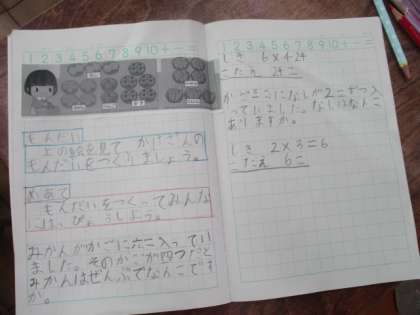 1 2 3 4 5 6 7 8 9 10 + - =
もんだい
上の絵を見て かけざんの
もんだいをつくりましょう。
めあて
もんだいをつくってみんな
にはっぴょうしよう。
みかんがかごに六こ入ってい
ました。そのかごが四つだと
みかんはぜんぶでなんこです
か。
1 2 3 4 5 6 7 8 9 10 + - =
しき 6×4=24
こたえ 24こ
かごになしが2こずつ入
っていました。なしはなんこ
ありますか。
しき 2×3=6
こたえ 6こ